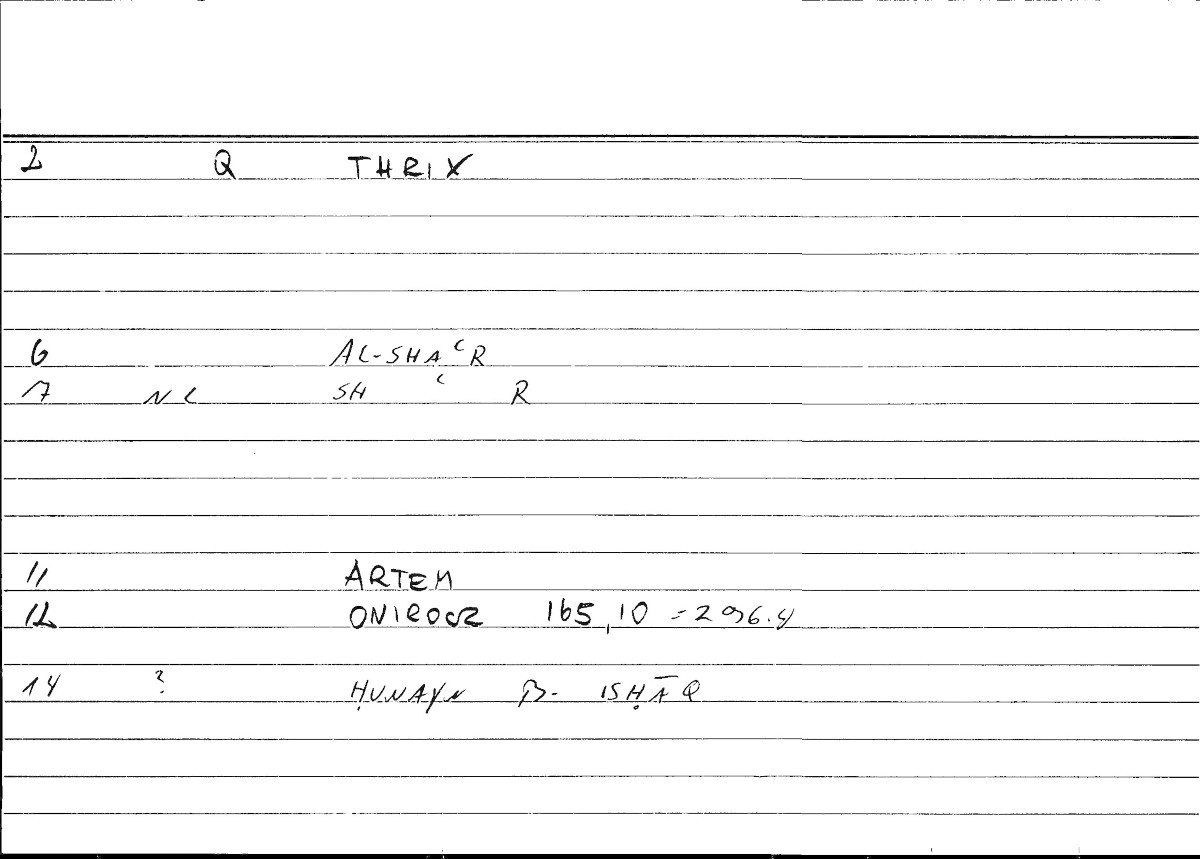 2 Q THRIX
6 AL-SHAʿR
17 NL SH ʿ R
11 ARTEM
12 ONIROCR 165,10 = 296.4
14 ? ḤUNAYN B- ISḤĀQ